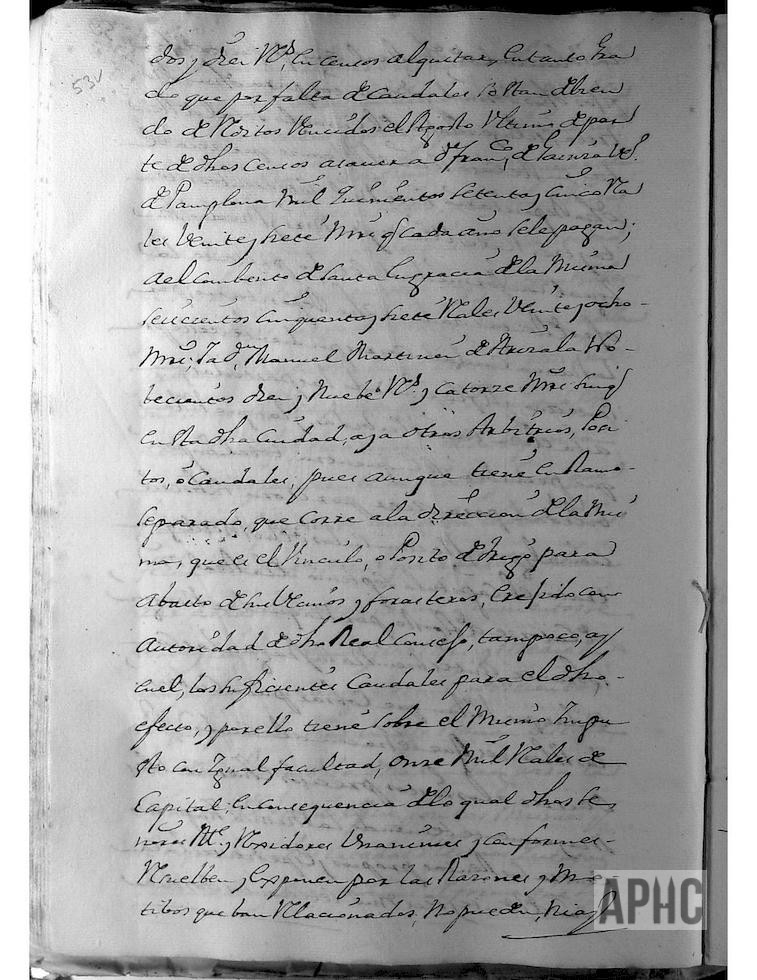 53v
dos, y diez Rs, en censos alquitar, en tanto gra
do que por falta de caudales estan debien
do de Reditos vencidos el Agosto ultimo de par
te de dhos censos a saver a Dn Franco de vo.
de Pamplona mil quinientos setenta, y cinco Rea
les veinte, y siete mrs q cada año se le pagan;
a el Combento de Santa Engracia de la misma
seiscientos cinquenta, y siete Reales veinte, y ocho
mrs; Ya dn Manuel Martinez de Arizala No-
becientos diez, y nuebe Rs, y catorze mrs sin q
en esta dha Ciudad, aya otros Arbitrios, Posi
tos, ò Caudales, pues aunque tiene un Ramo
separado, que corre a la dirección de la mis
ma, que es el Vinculo, o Posito de trigo para
Abasto de sus Vecinos y forasteros, erexido con
Autoridad de dho Real Consejo, tampoco, ay
en el, los suficientes Caudales para el dho
efecto, y por ello tiene sobre el mismo Impu
esto con Igual facultad, onze mil Reales de
Capital; En consequencia de lo qual dhos Se
ñores Alc. y Rexidores Unanimes y conformes
Resuelben, y exponen por las Razones, y Mo
tibos que ban Relacionados, no pueden, ni ay
APHC